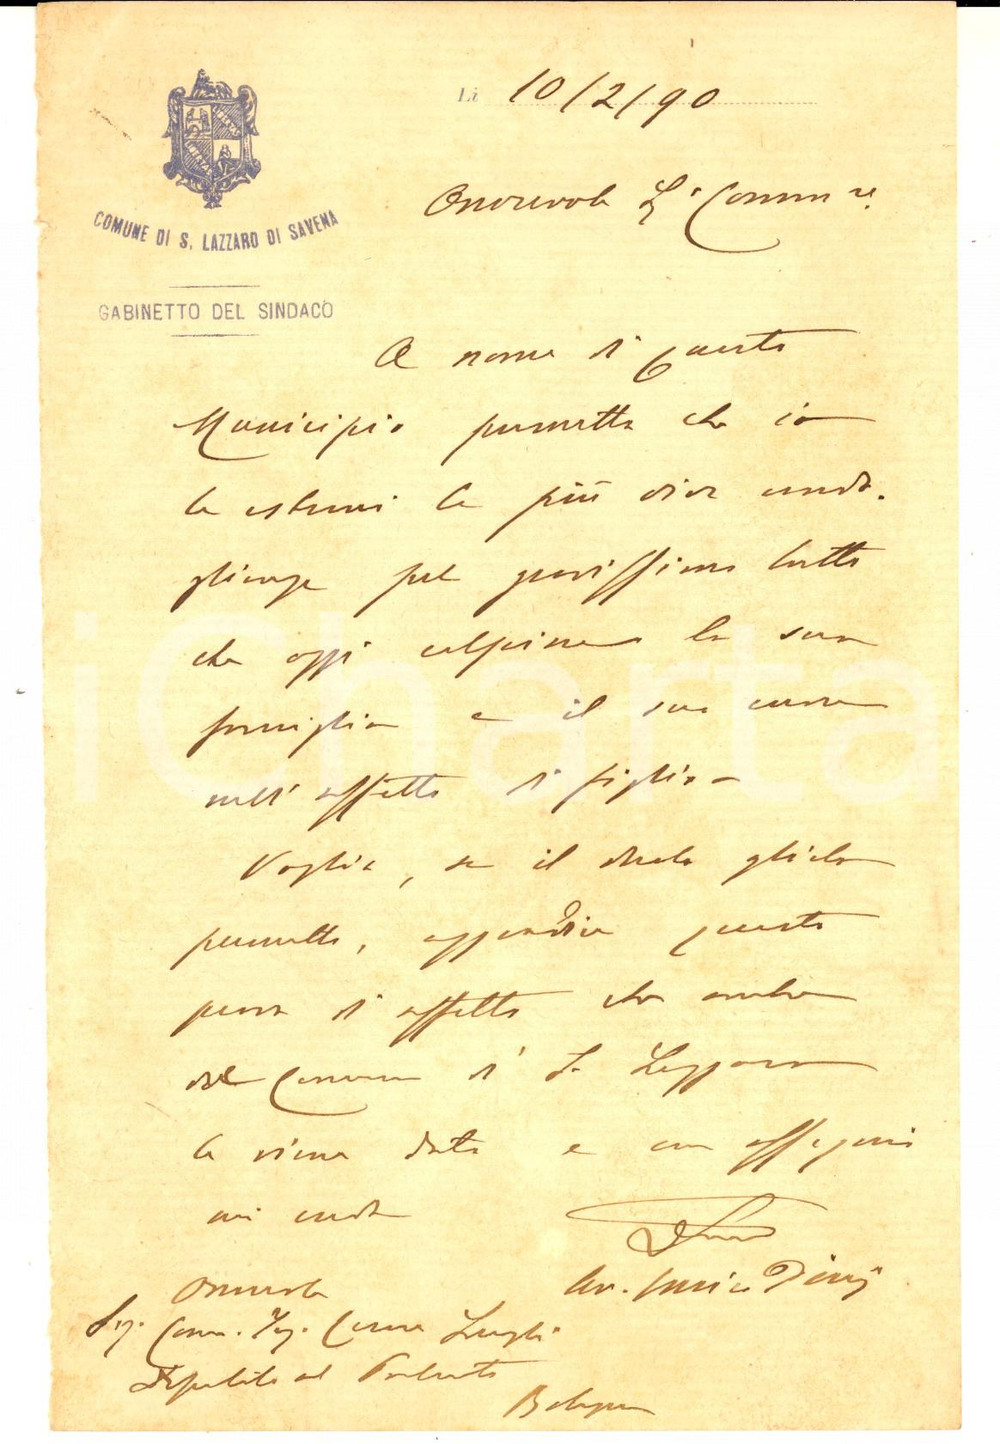 COMUNE DI S. LAZZARO DI SAVENA
GABINETTO DEL SINDACO
Li 10/2/90
Onorevole Sig. Comm.re
A nome di questo
Municipio permetta che io
le esterni le più vive condo-
glianze pel gravissimo lutto
che oggi colpisce la sua
famiglia e il suo cuore
nell'affetto di figlio
Voglia, se il duolo glielo
permette, aggradire questa
prova di affetto che anche
dal Comune di S. Lazzaro
le viene data e con ossequi
mi creda
Il Sindaco
Av. Enrico
Onorevole
Sig. Comm. Ing. Cesare Lugli
Deputato al Parlamento
Bologna
iCharta